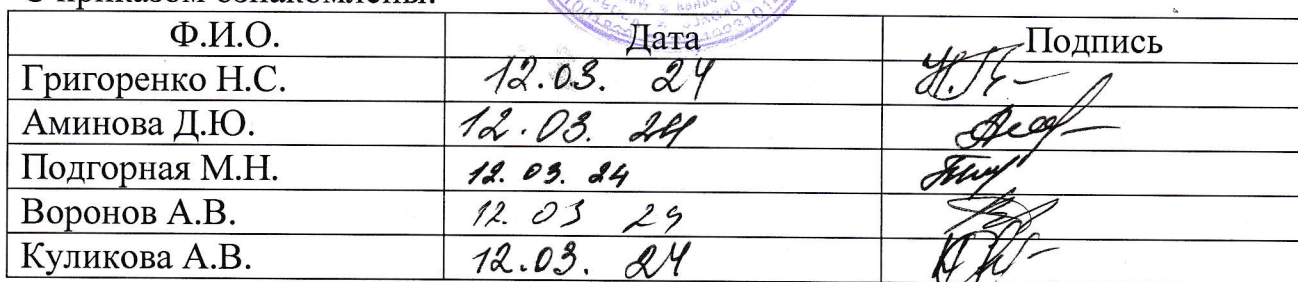 С приказом ознакомлены:
Ф.И.О. Дата Подпись
Григоренко Н.С. 12.03. 24
Аминова Д.Ю. 12.03. 24
Подгорная М.Н. 12.03.24
Воронов А.В. 12.03 24
Куликова А.В. 12.03. 24